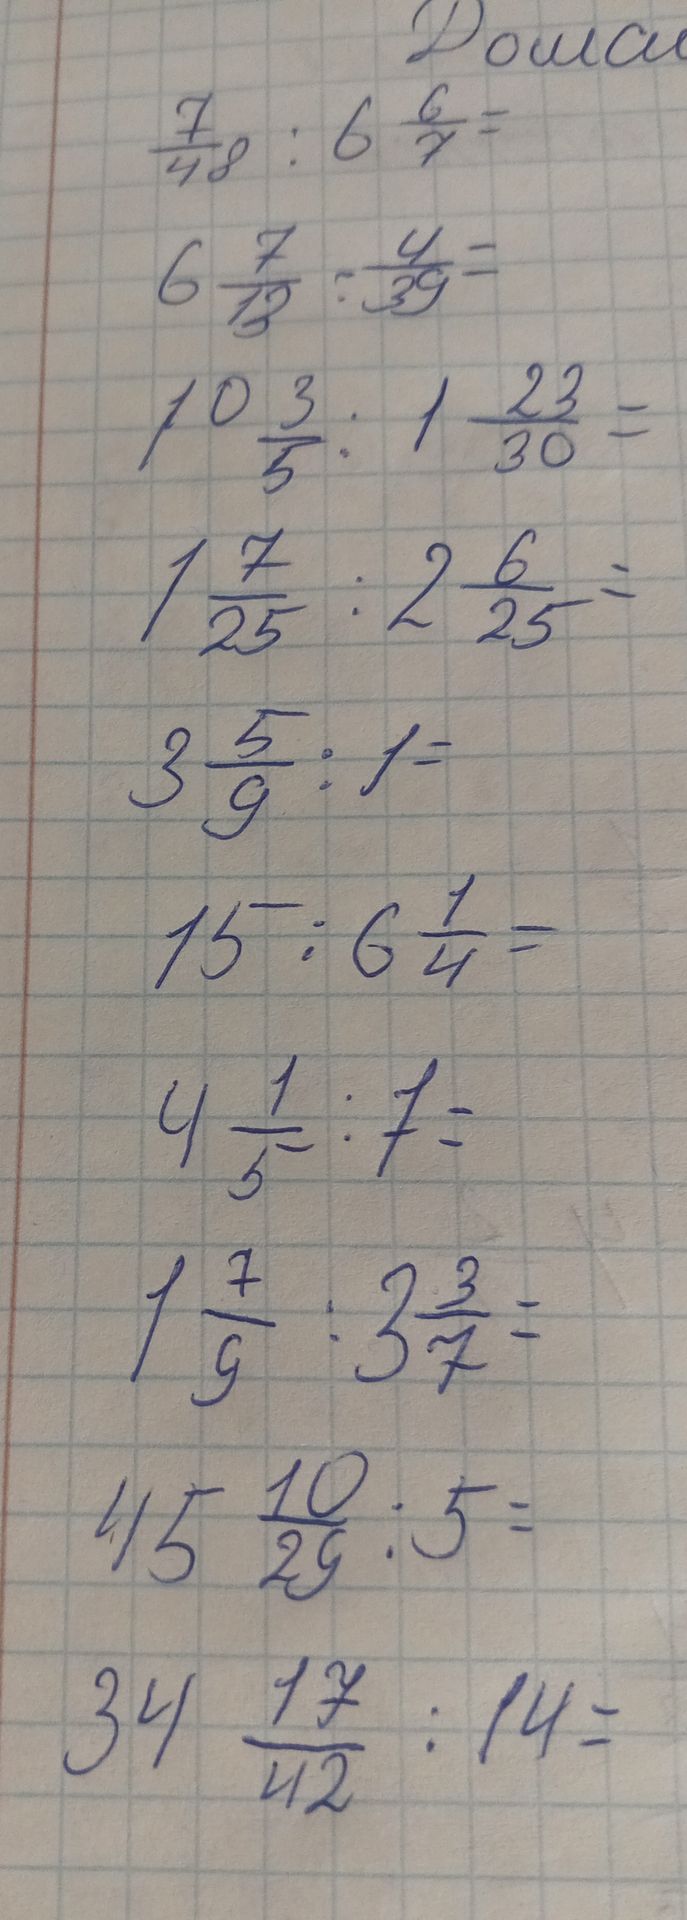 Домаш
7/48 : 6 6/7 =
6 7/13 : 4/39 =
10 3/5 : 1 23/30 =
1 7/25 : 2 6/25 =
3 5/9 : 1 =
15 : 6 1/4 =
4 1/5 : 7 =
1 7/9 : 3 3/7 =
45 10/29 : 5 =
34 17/42 : 14 =